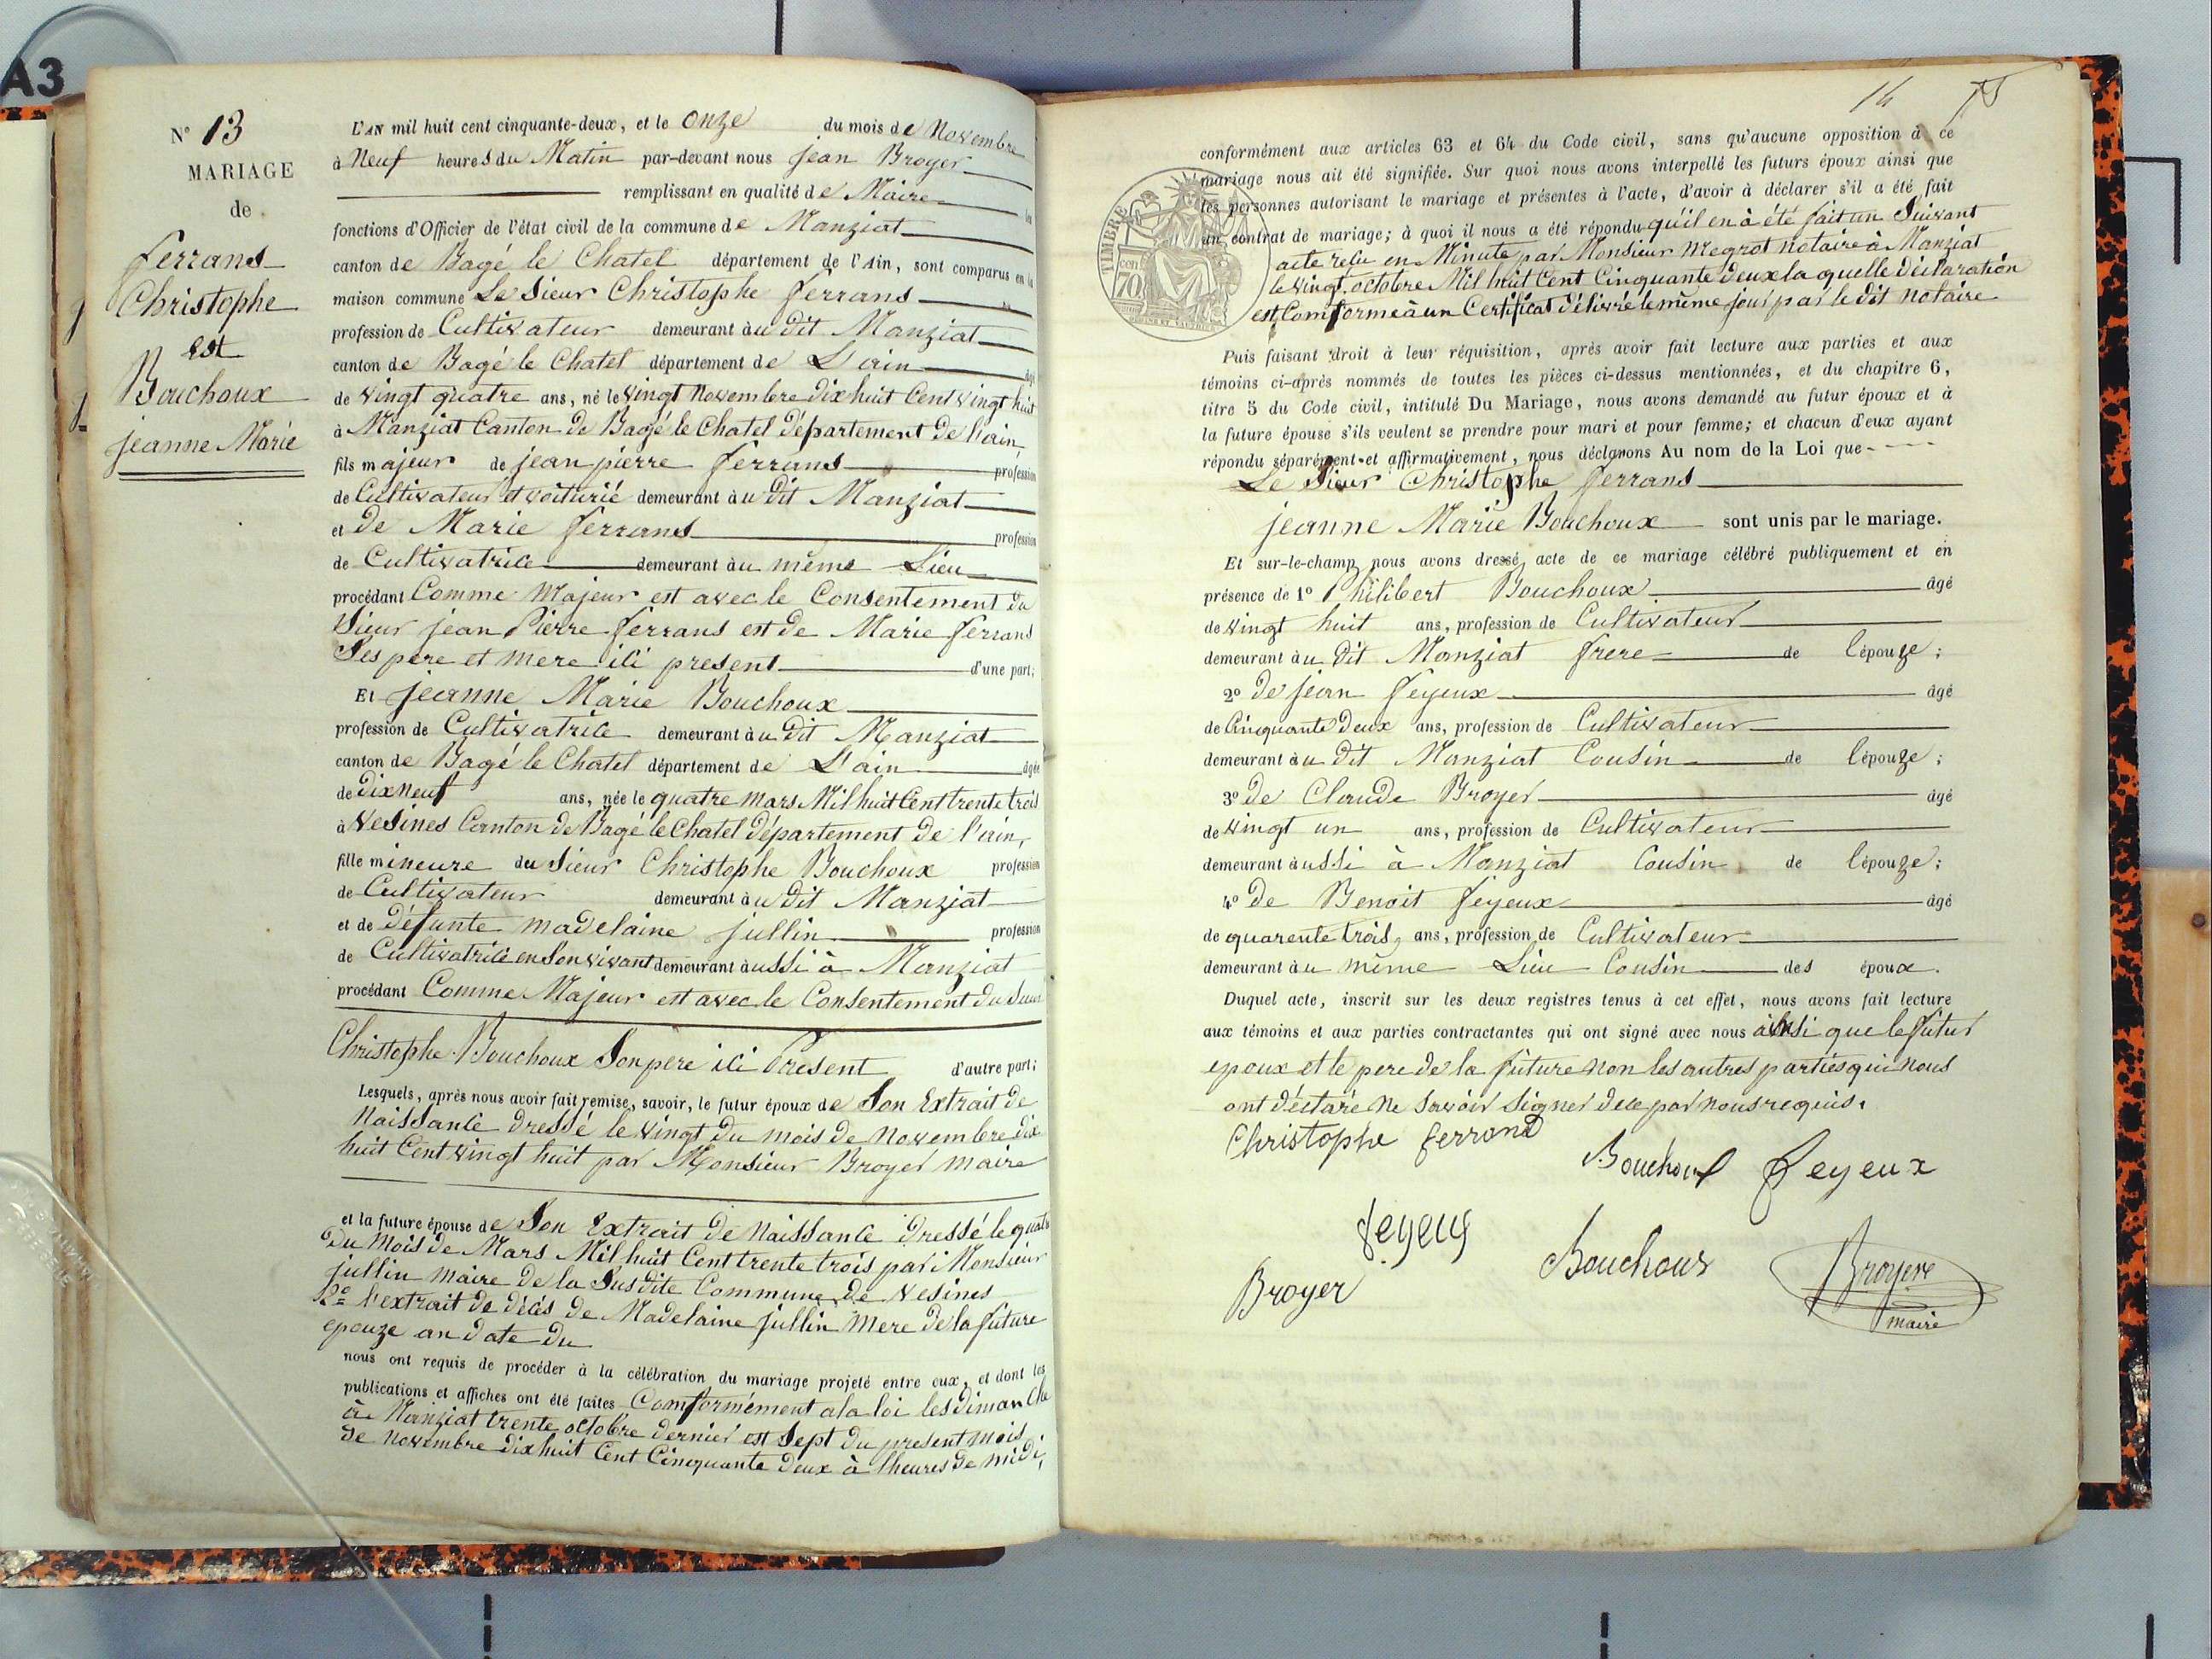 A3
N° 13
MARIAGE
de
ferrans
Christophe
est
Bouchoux
jeanne Marie
L'AN mil huit cent cinquante-deux, et le onze du mois de Novembre
à Neuf heures du Matin par-devant nous jean Broyer
remplissant en qualité de Maire les
fonctions d'Officier de l'état civil de la commune de Manziat
canton de Bagé le Chatel département de l'Ain, sont comparus en la
maison commune Le Sieur Christophe ferrans
profession de Cultivateur demeurant àu dit Manziat
canton de Bagé le Chatel département de L'ain âgé
de vingt quatre ans, né le vingt Novembre dix huit Cent vingt huit
à Manziat Canton de Bagé le Chatel département de l'ain
fils majeur de jean pierre ferrans profession
de Cultivateur et voiturié demeurant àu dit Manziat
et de Marie ferrans profession
de Cultivatrice demeurant àu même Lieu
procédant Comme Majeur est avec le Consentement du
Sieur jean Pierre ferrans est de Marie ferrans
Ses pere et mere ici present d'une part;
Et jeanne Marie Bouchoux
profession de Cultivatrice demeurant àu dit Manziat
canton de Bagé le Chatel département de L'ain âgée
de dix neuf ans, née le quatre mars Mil huit Cent trente trois
à Vesines Canton de Bagé le Chatel département de l'ain,
fille mineure du Sieur Christophe Bouchoux profession
de Cultivateur demeurant àu dit Manziat
et de défunte madelaine jullin profession
de Cultivatrice en Son vivant demeurant àussi à Manziat
procédant Comme Majeur est avec le Consentement du Sieur
Christophe Bouchoux Son pere ici Present d'autre part;
Lesquels, après nous avoir fait remise, savoir, le futur époux de Son Extrait de
Naissance dressé le vingt du mois de Novembre dix
huit Cent vingt huit par Monsieur Broyer maire
et la future épouse de Son Extrait de Naissance dressé le quatre
du Mois de Mars Mil huit Cent trente trois par Monsieur
jullin maire de la Susdite Commune de Vesines
2° l'extrait de décès de Madelaine jullin Mere de la future
epouze an date du
nous ont requis de procéder à la célébration du mariage projeté entre eux, et dont les
publications et affiches ont été faites Comformément a la loi les dimanche
à Manziat trente octobre dernier est Sept du present mois
de Novembre dix huit Cent Cinquante deux à lheures de midi,
14
conformément aux articles 63 et 64 du Code civil, sans qu'aucune opposition à ce
mariage nous ait été signifiée. Sur quoi nous avons interpellé les futurs époux ainsi que
les personnes autorisant le mariage et présentes à l'acte, d'avoir à déclarer s'il a été fait
un contrat de mariage; à quoi il nous a été répondu qu'il en à été fait un Suivant
acte relu en Minute par Monsieur Megrot Notaire à Manziat
le vingt octobre Mil huit Cent Cinquante deux la quelle déclaration
est Comforme à un Certificat délivré le même jour par le dit Notaire
TIMBRE
70
Puis faisant droit à leur réquisition, après avoir fait lecture aux parties et aux
témoins ci-après nommés de toutes les pièces ci-dessus mentionnées, et du chapitre 6,
titre 5 du Code civil, intitulé Du Mariage, nous avons demandé au futur époux et à
la future épouse s'ils veulent se prendre pour mari et pour femme; et chacun d'eux ayant
répondu séparément et affirmativement, nous déclarons Au nom de la Loi que
Le Sieur Christophe ferrans
jeanne Marie Bouchoux sont unis par le mariage.
Et sur-le-champ nous avons dressé acte de ce mariage célébré publiquement et en
présence de 1° Philibert Bouchoux âgé
de vingt huit ans, profession de Cultivateur
demeurant àu dit Manziat frere de lépouze;
2° de jean feyeux âgé
de Cinquante deux ans, profession de Cultivateur
demeurant àu dit Manziat Cousin de lépouze;
3° de Claude Broyer âgé
de vingt un ans, profession de Cultivateur
demeurant àussi à Manziat Cousin de lépouze;
4° de Benoit feyeux âgé
de quarente trois ans, profession de Cultivateur
demeurant àu même Lieu Cousin des époux.
Duquel acte, inscrit sur les deux registres tenus à cet effet, nous avons fait lecture
aux témoins et aux parties contractantes qui ont signé avec nous àinsi que le futur
epoux et le pere de la future non les autres parties qui nous
ont déclaré ne Savoir Signer de ce par nous requis.
Christophe ferrand
Bouchoux feyeux
feyeux
Bouchoux
Broyer
Broyere
maire